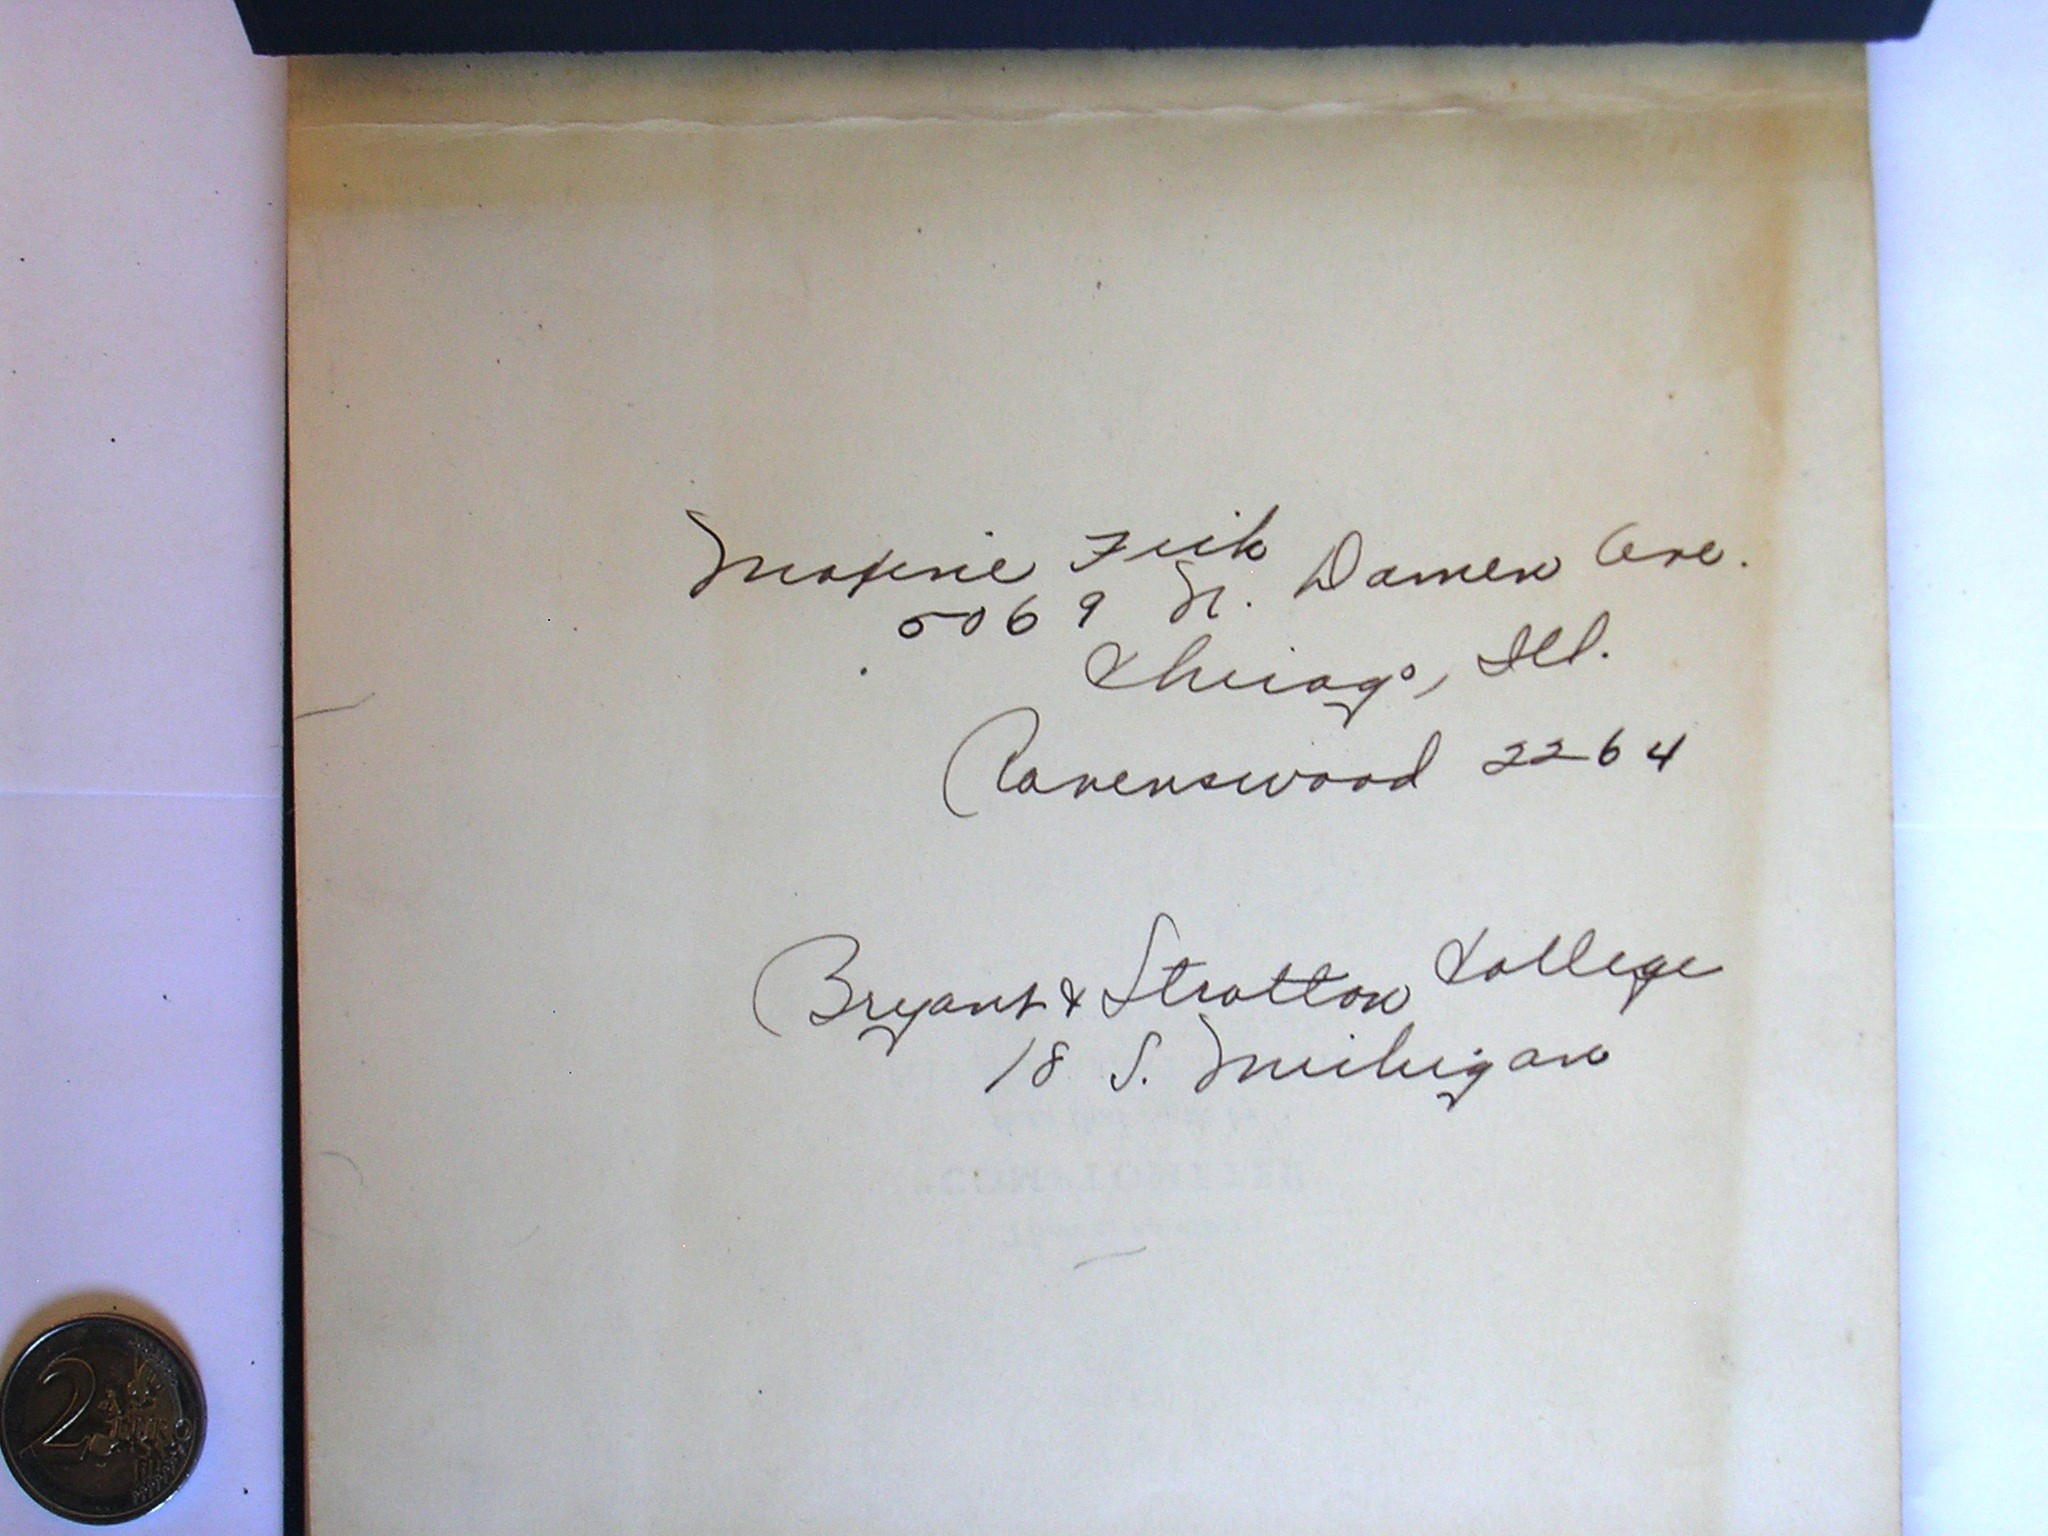 Maxine Fick
5069 N. Damen Ave.
Chicago, Ill.
Ravenswood 2264
Bryant & Stratton College
18 S. Michigan
COMPTOMETER
2
EURO